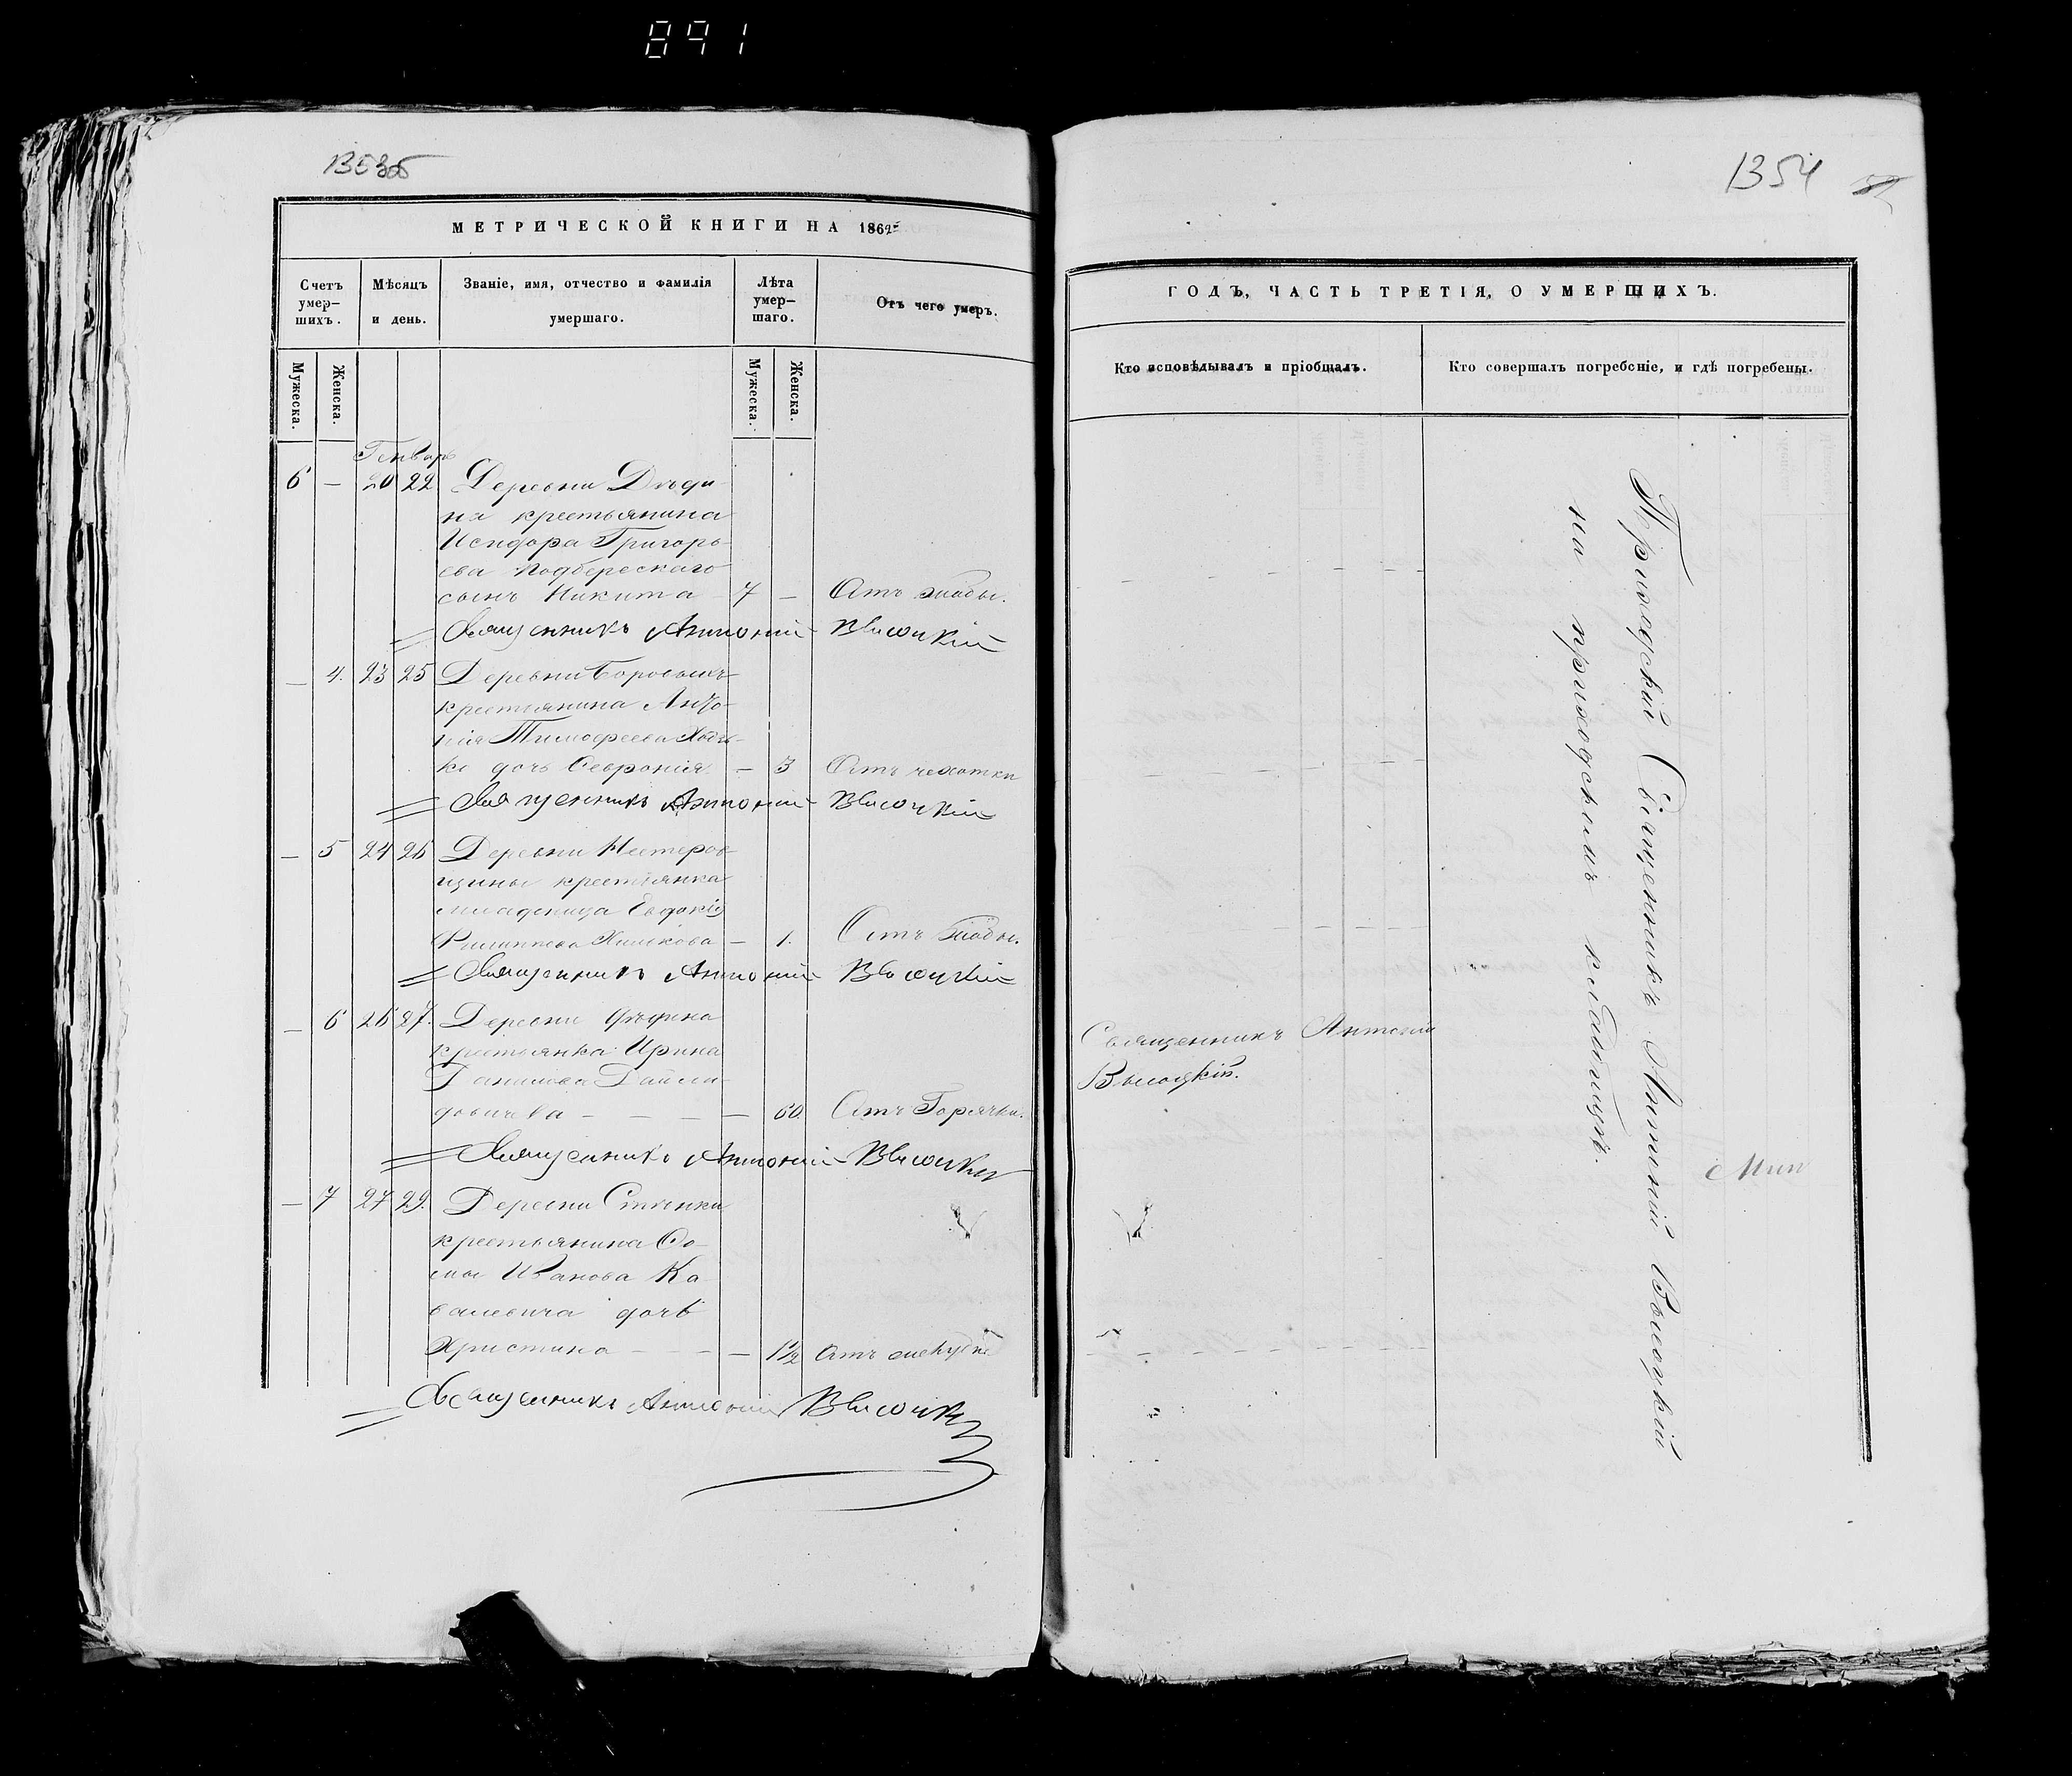 891
1353об
1354
МЕТРИЧЕСКОЙ КНИГИ НА 1862
Счетъ умер-шихъ.
Мѣсяцъ и день.
Званіе, имя, отчество и фамилія умершаго.
Лѣта умер-шаго.
Отъ чего умеръ.
Мужеска.
Женска.
Мужеска.
Женска.
Генварь
6 — 20 22 Деревни Дѣди-
на крестьянина
Исидора Григорь-
ева Подберескаго
сынъ Никита — 7 — Отъ жабы.
Священникъ Антоній Высоцкій
— 4. 23 25 Деревни Боровыхъ
крестьянина Анто-
нія Тимофеева Ходь-
ко дочь Февронія — 3 Отъ чахотки
Священникъ Антоній Высоцкій
— 5 24 26 Деревни Нестеров-
щины крестьянка
младеница Евдокія
Филиппова — 1. Отъ жабы.
Священникъ Антоній Высоцкій
— 6 26 27. Деревни Дѣдина
крестьянка Ирина
Данилова Дайли-
довичева — — — — 60 Отъ Горячки.
Священникъ Антоній Высоцкій
— 7 27 29. Деревни Стѣнки
крестьянина Ѳо-
мы Иванова Ка-
валевича дочь
Христина — — — — 1½ Отъ
Священникъ Антоній Высоцкій
ГОДЪ, ЧАСТЬ ТРЕТІЯ, О УМЕРШИХЪ.
Кто исповѣдывалъ и пріобщалъ.
Кто совершалъ погребеніе, и гдѣ погребены.
Священникъ Антоній
Высоцкій.
Приходскій Священникъ Антоній Высоцкій
на приходскимъ кладбищѣ.